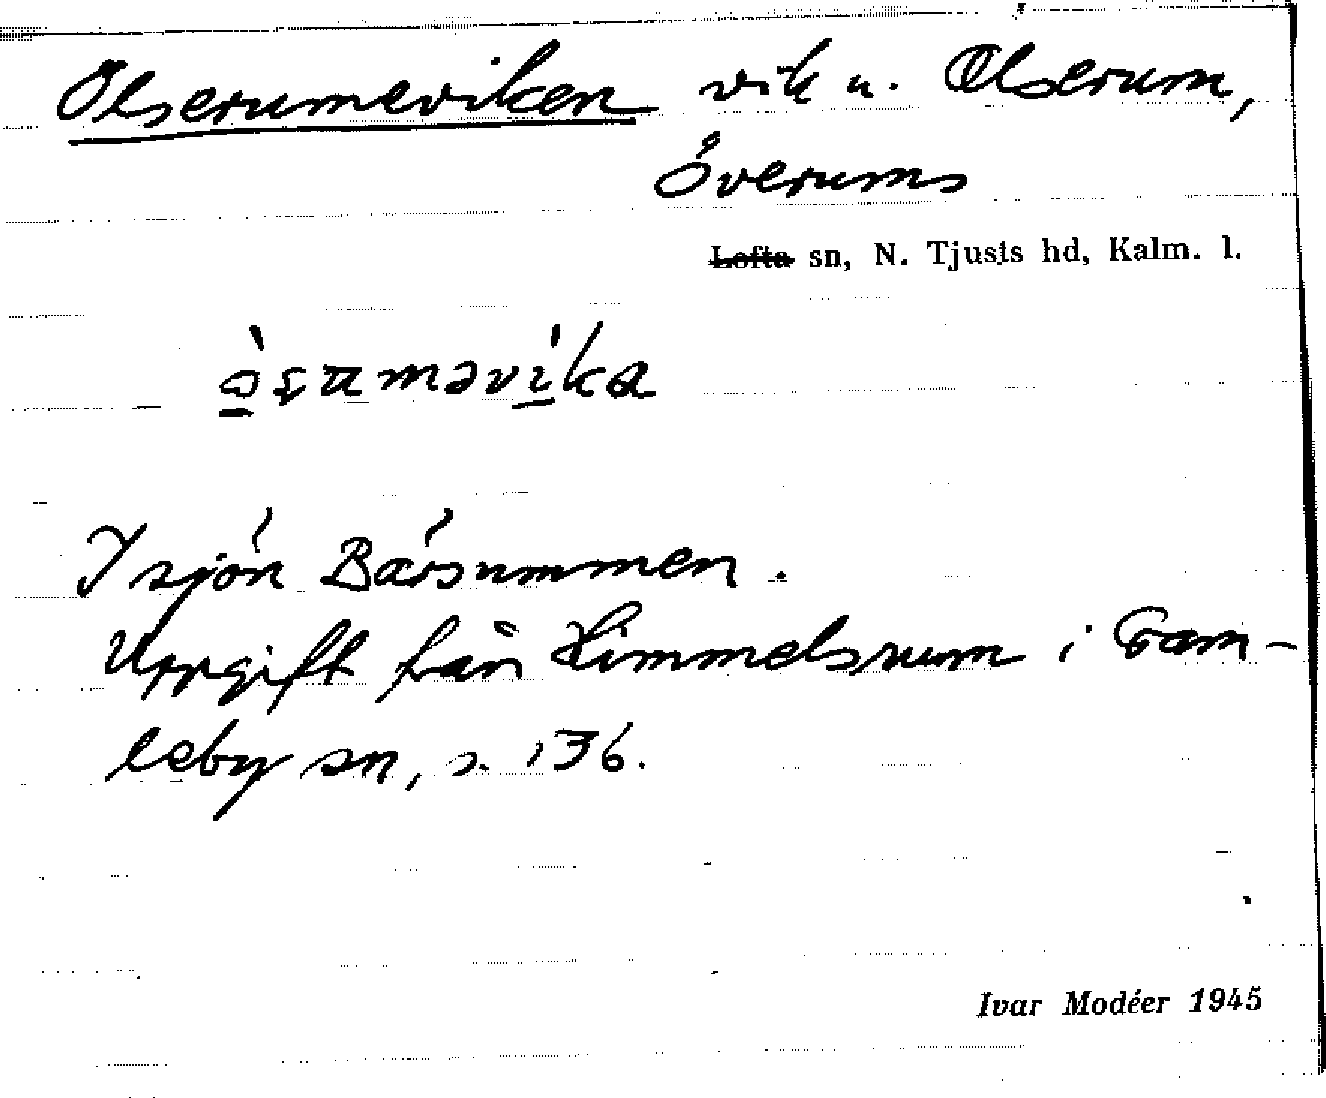 Olserumeviken vik u. Olserum,
Överums
Lofta sn, N. Tjusts hd, Kalm. l.
I sjön Bårsummen.
Uppgift från Himmelsrum i Gam-
leby sn, s. 136.
Ivar Modéer 1945